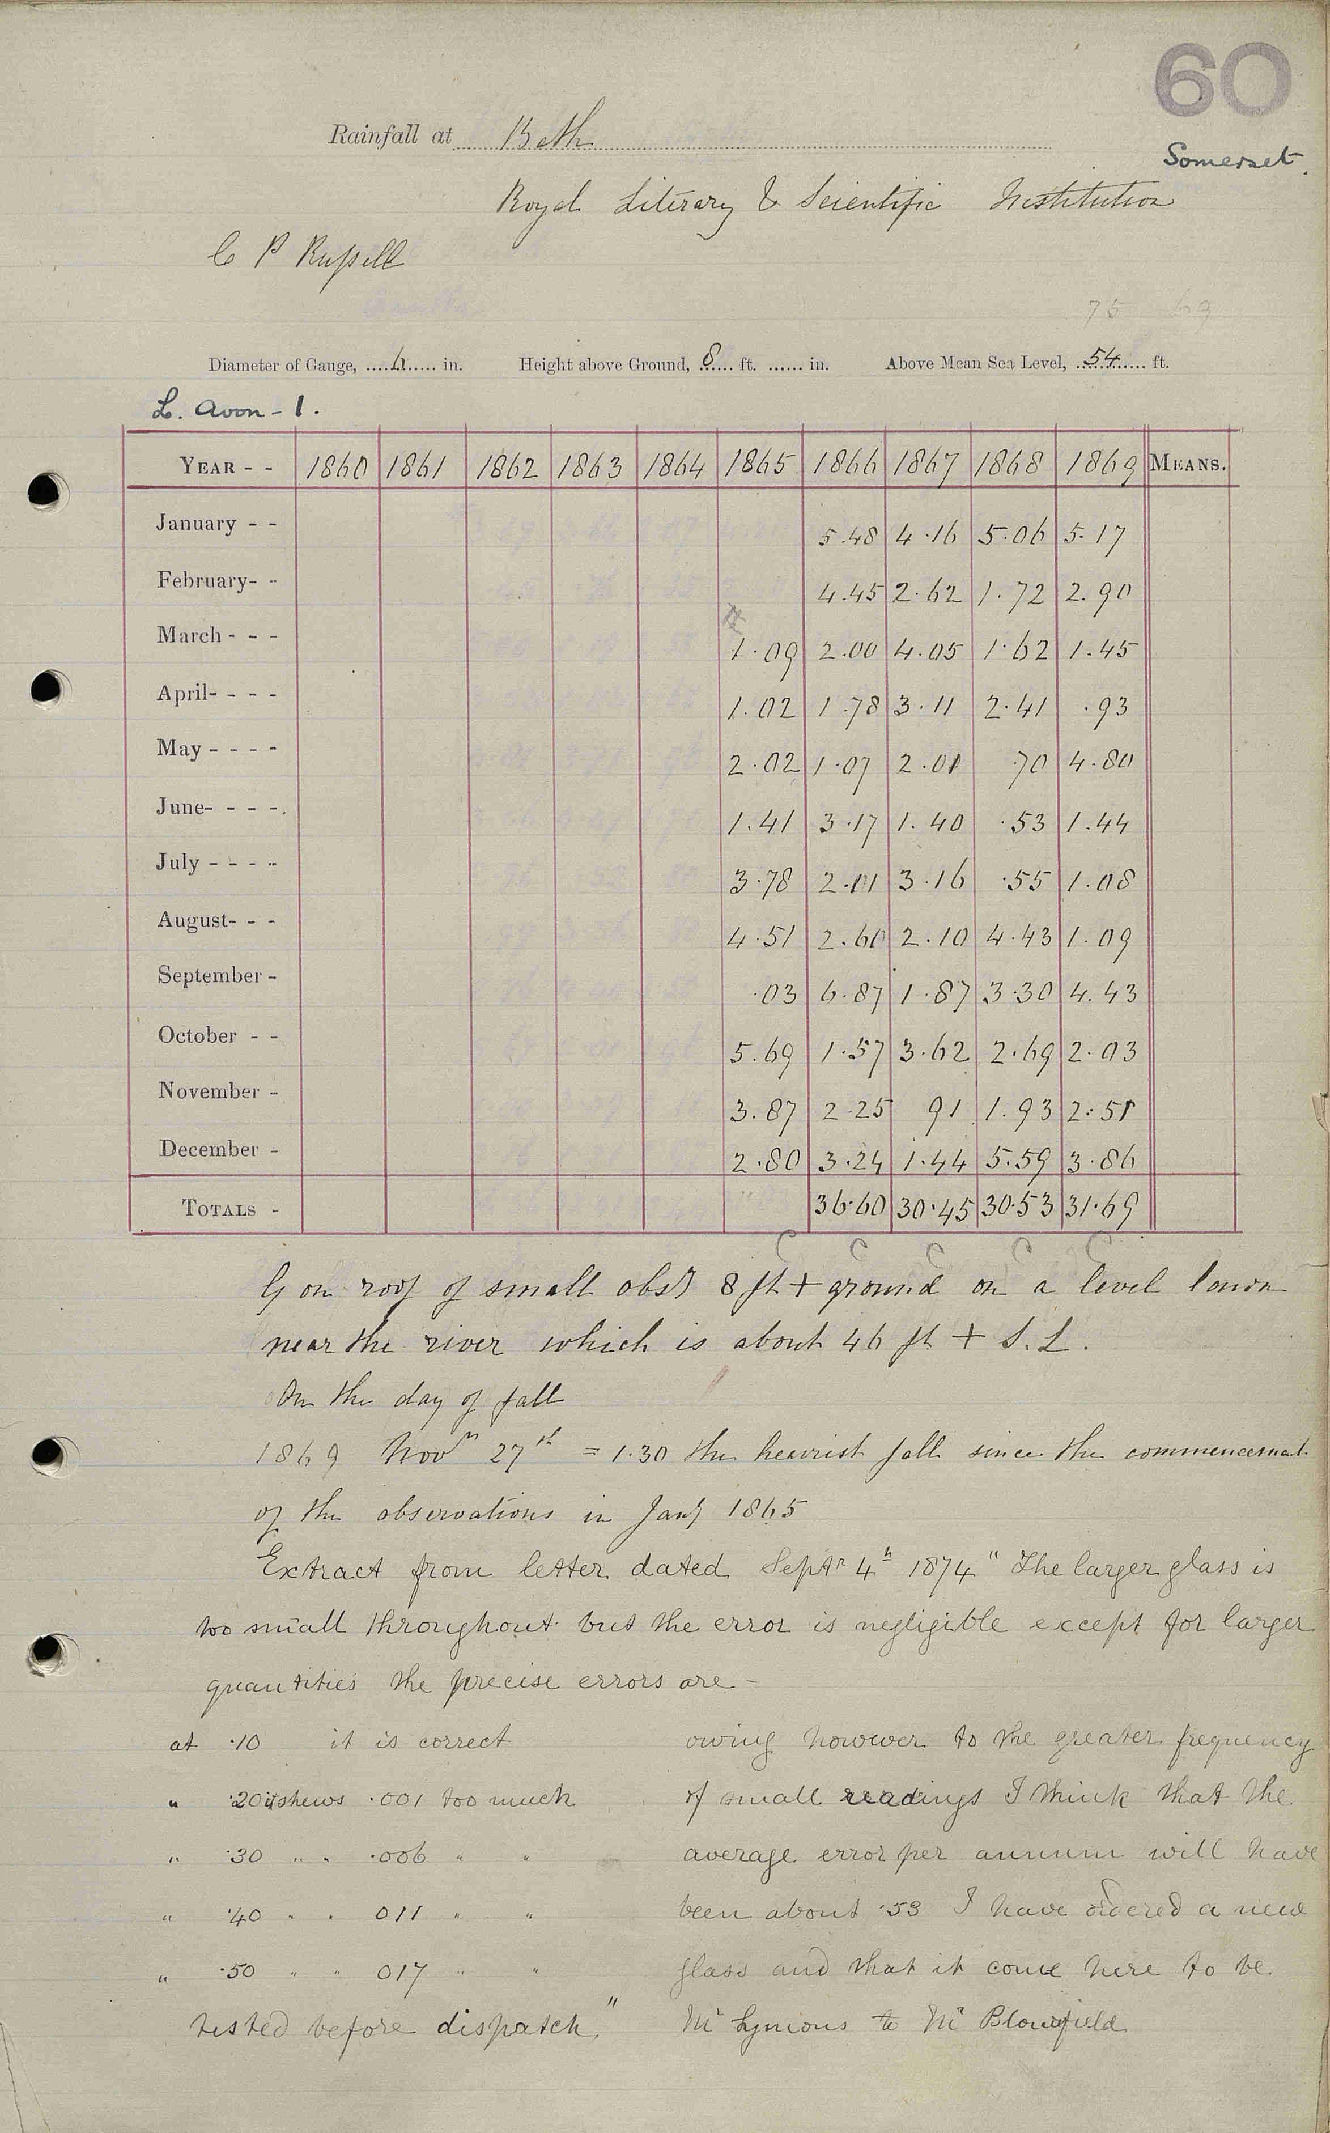 60
Somerset.
Rainfall at Bath
Royal Literary & Scientific Institution
C P Russell
75 69
Diameter of Gauge, 6 in. Height above Ground, 8 ft. ...... in. Above Mean Sea Level, 54 ft.
L. Avon - 1.
YEAR - - 1860 1861 1862 1863 1864 1865 1866 1867 1868 1869 MEANS.
January - - 5.48 4.16 5.06 5.17
February- - 4.45 2.62 1.72 2.90
March - - - 1.09 2.00 4.05 1.62 1.45
April- - - - 1.02 1.78 3.11 2.41 .93
May - - - - 2.02 1.07 2.01 .70 4.80
June- - - -. 1.41 3.17 1.40 .53 1.44
July - - - - 3.78 2.11 3.16 .55 1.08
August- - - 4.51 2.60 2.10 4.43 1.09
September - .03 6.87 1.87 3.30 4.43
October - - 5.69 1.57 3.62 2.69 2.03
November - 3.87 2.25 91 1.93 2.51
December - 2.80 3.24 1.44 5.59 3.86
TOTALS - 36.60 30.45 30.53 31.69
C C C C C
G on roof of small obsy 8 ft + ground on a level lawn
near the river which is about 46 ft + S.L.
On the day of fall
1869 Novr 27th = 1.30 the heaviest fall since the commencement
of the observations in Jany 1865
Extract from letter dated Septr 4th 1874 " The larger glass is
too small throughout but the error is negligible except for larger
quantities the precise errors are -
at .10 it is correct
" .20 it shews .001 too much
" .30 " " .006 " "
" .40 " " 011 " "
" .50 " " 017 " "
owing however to the greater frequency
of small readings I think that the
average error per annum will have
been about .53 I have ordered a new
glass and that it come here to be
tested before dispatch" Mr Symons to Mr Blomfield